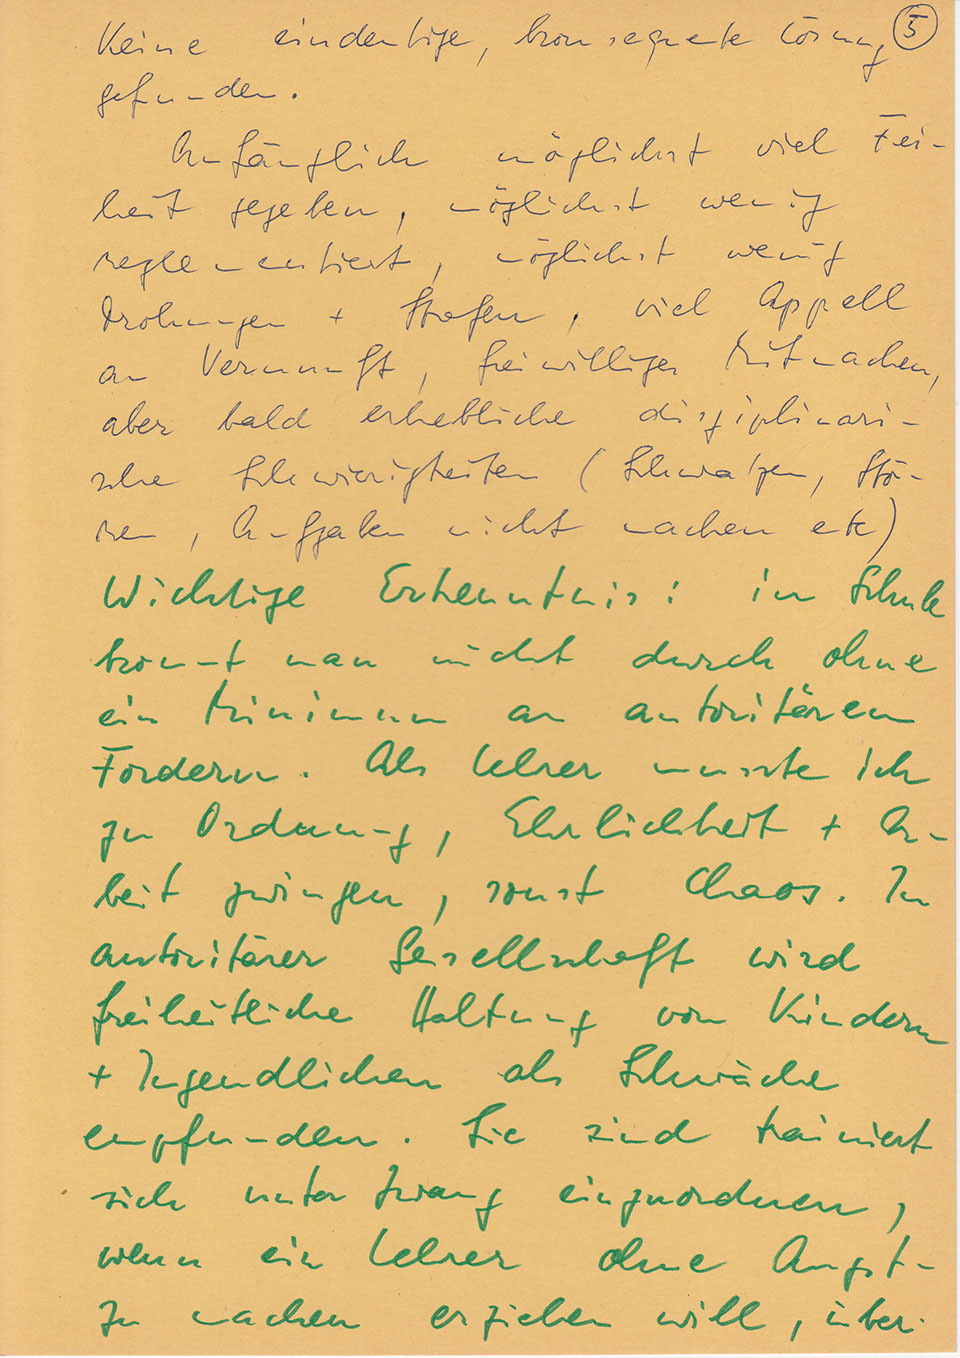 Keine eindeutige, konsequente Lösung ⑤
gefunden.
Anfänglich möglichst viel Frei-
heit gegeben, möglichst wenig
reglementiert, möglichst wenig
Drohungen + Strafen, viel Appell
an Vernunft, freiwilliges Mitmachen,
aber bald erhebliche disziplinari-
sche Schwierigkeiten (Schwatzen, Stö-
ren, Aufgaben nicht machen etc)
Wichtige Erkenntnis: in Schule
kommt man nicht durch ohne
ein Minimum an autoritärem
Fordern. Als Lehrer musste ich
zu Ordnung, Ehrlichkeit + Ar-
beit zwingen, sonst Chaos. In
autoritärer Gesellschaft wird
freiheitliche Haltung von Kindern
+ Jugendlichen als Schwäche
empfunden. Sie sind trainiert
sich unter Zwang einzuordnen,
wenn ein Lehrer ohne Angst-
zu machen erziehen will, über-